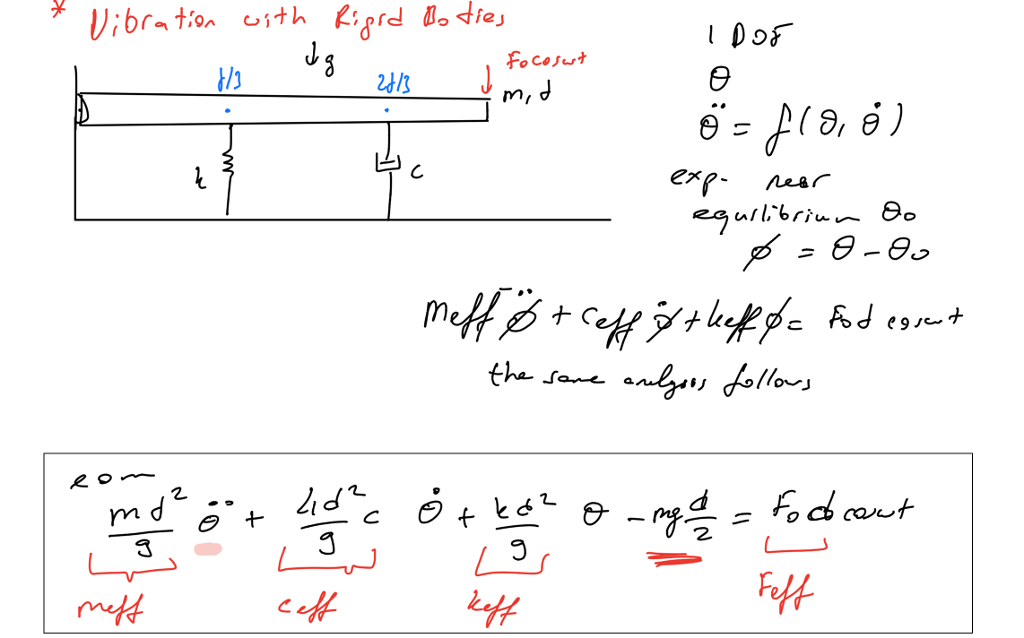 * Vibration with Rigid Bodies
↓g
F₀cosωt
d/3
2d/3
m, d
k
c
1 DOF
θ
θ̈ = f(θ, θ̇)
exp. near
equilibrium θ₀
φ = θ - θ₀
meff φ̈ + ceff φ̇ + keff φ = F₀d cosωt
the same analysis follows
eom
md²/9 θ̈ + 4d²/9 c θ̇ + kd²/9 θ - mg d/2 = F₀d cosωt
meff ceff keff Feff